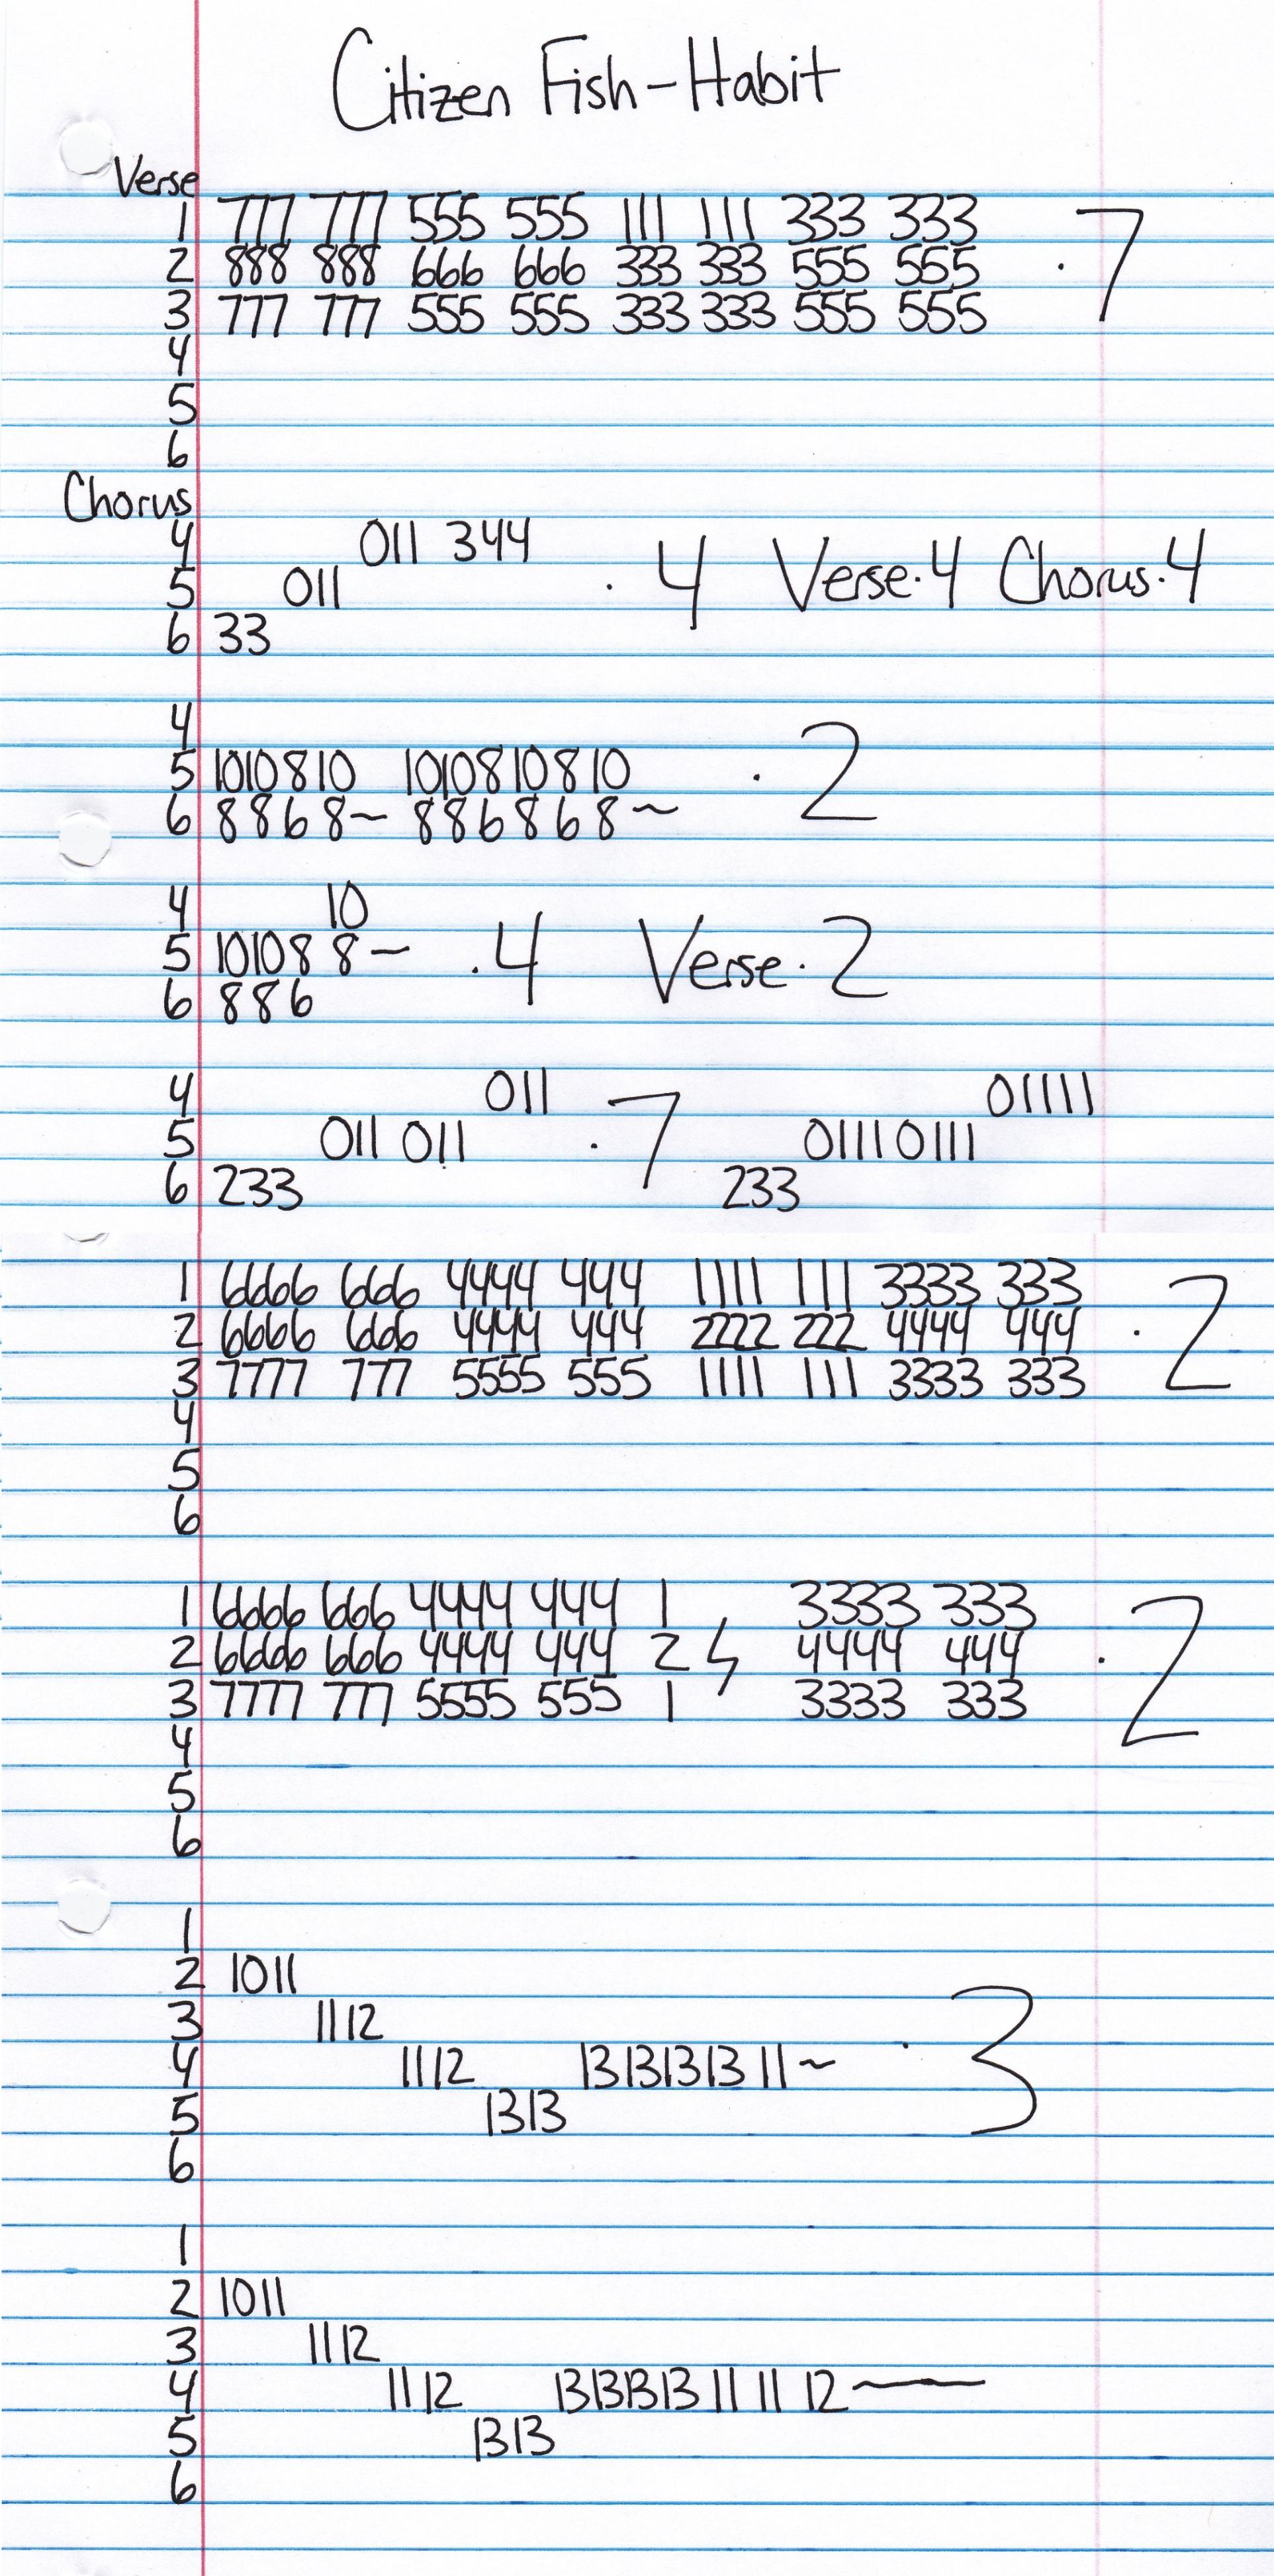 Citizen Fish-Habit
Verse
1 777 777 555 555 111 111 333 333
2 888 888 666 666 333 333 555 555 · 7
3 777 777 555 555 333 333 555 555
4
5
6
Chorus
4 011 344
5 011 · 4 Verse·4 Chorus·4
6 33
4
5 1010810 1010810810 · 2
6 8868~ 886868~
4 10
5 10108 8~ · 4 Verse·2
6 886
4 011 01111
5 011 011 · 7 01110111
6 233 233
1 6666 666 4444 444 1111 111 3333 333
2 6666 666 4444 444 2222 222 4444 444 · 2
3 7777 777 5555 555 1111 111 3333 333
4
5
6
1 6666 666 4444 444 1 3333 333
2 6666 666 4444 444 2 4444 444 · 2
3 7777 777 5555 555 1 3333 333
4
5
6
1
2 1011
3 1112
4 1112 13131313 11~ · 3
5 1313
6
1
2 1011
3 1112
4 1112 13131313 11 11 12~
5 1313
6